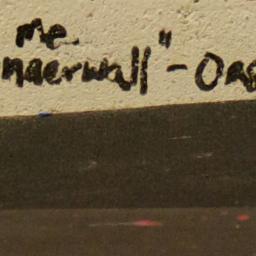 me.
nderwall" - Oas